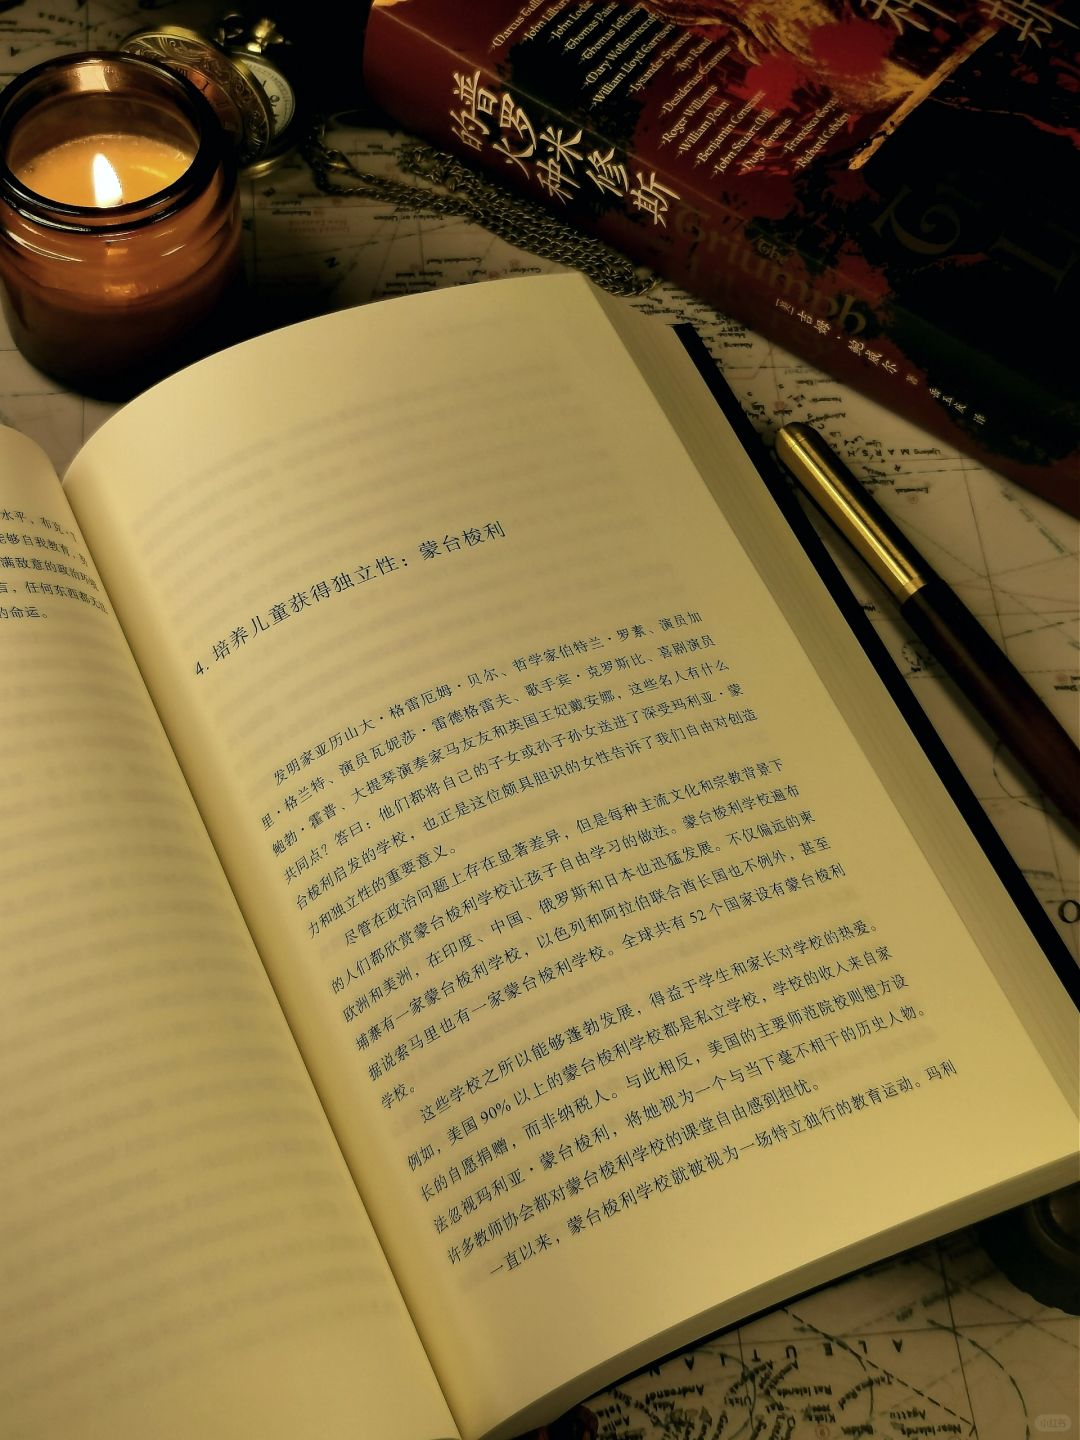 Marcus Tullius
John Lilburne
John Locke
Thomas Paine
Thomas Jefferson
Mary Wollstonecraft
William Lloyd Garrison
Lysander Spooner
Ayn Rand
Desiderius Erasmus
Roger Williams
William Penn
Benjamin Constant
John Stuart Mill
Hugo Grotius
Francisco Goya
Richard Cobden
普罗米修斯
的火种
The
Triumph
[美]吉姆·鲍威尔 著
水平、布克·T
能够自我教育,
满敌意的政治环境
言,任何东西都无法
的命运。
4. 培养儿童获得独立性:蒙台梭利
发明家亚历山大·格雷厄姆·贝尔、哲学家伯特兰·罗素、演员加
里·格兰特、演员瓦妮莎·雷德格雷夫、歌手宾·克罗斯比、喜剧演员
鲍勃·霍普、大提琴演奏家马友友和英国王妃戴安娜,这些名人有什么
共同点?答曰:他们都将自己的子女或孙子孙女送进了深受玛利亚·蒙
台梭利启发的学校,也正是这位颇具胆识的女性告诉了我们自由对创造
力和独立性的重要意义。
尽管在政治问题上存在显著差异,但是每种主流文化和宗教背景下
的人们都欣赏蒙台梭利学校让孩子自由学习的做法。蒙台梭利学校遍布
欧洲和美洲,在印度、中国、俄罗斯和日本也迅猛发展。不仅偏远的柬
埔寨有一家蒙台梭利学校,以色列和阿拉伯联合酋长国也不例外,甚至
据说索马里也有一家蒙台梭利学校。全球共有 52 个国家设有蒙台梭利
学校。
这些学校之所以能够蓬勃发展,得益于学生和家长对学校的热爱。
例如,美国 90% 以上的蒙台梭利学校都是私立学校,学校的收入来自家
长的自愿捐赠,而非纳税人。与此相反,美国的主要师范院校则想方设
法忽视玛利亚·蒙台梭利,将她视为一个与当下毫不相干的历史人物。
许多教师协会都对蒙台梭利学校的课堂自由感到担忧。
一直以来,蒙台梭利学校就被视为一场特立独行的教育运动。玛利
Rat Islands
Kiska
Agattu
Near Islands
小红书